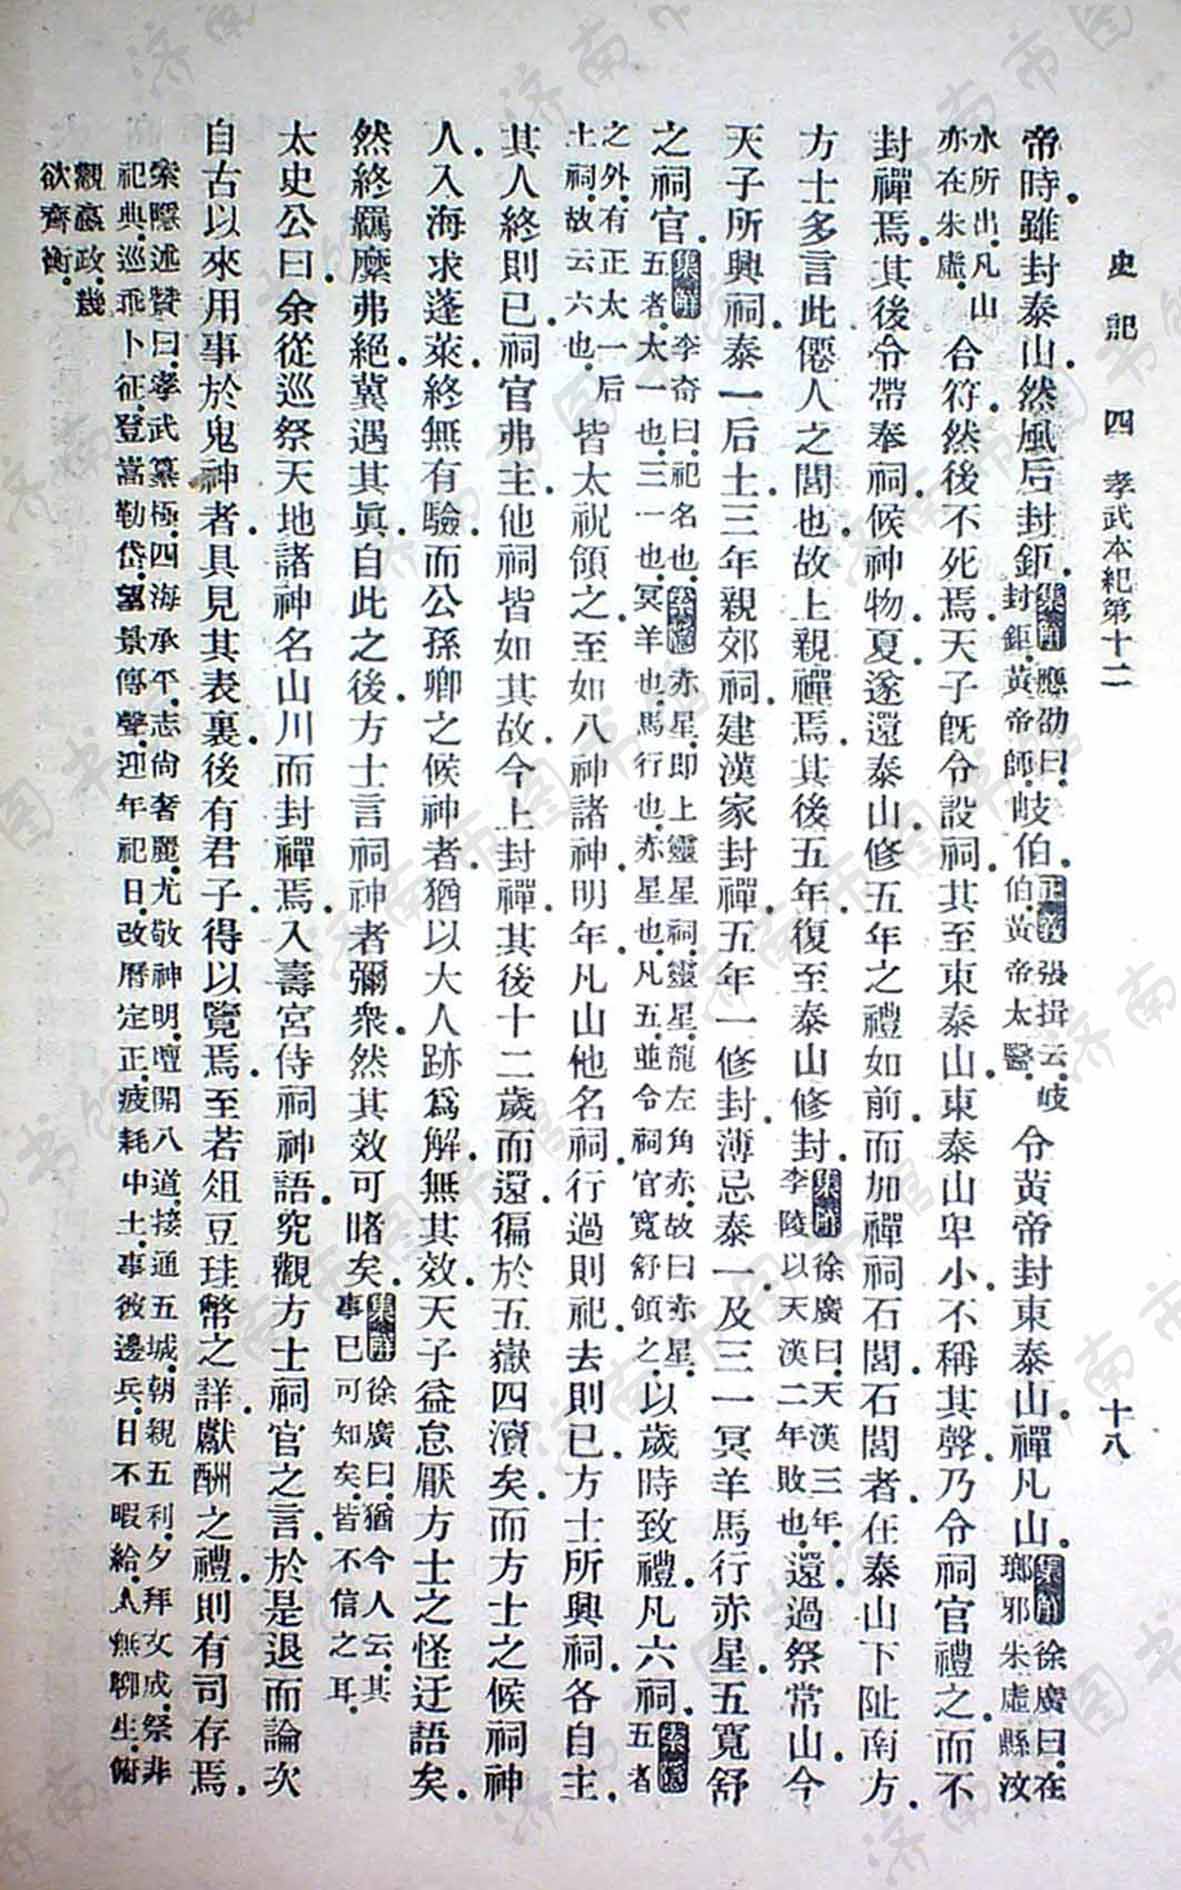 史記四 孝武本紀第十二 十八
帝時。雖封泰山。然風后封鉅。集解應劭曰。封鉅。黃帝師。岐伯。正義張揖云。岐伯。黃帝太醫。令黃帝封東泰山。禪凡山。集解徐廣曰。在瑯邪朱虛縣汶
水所出。凡山亦在朱虛。合符。然後不死焉。天子旣令設祠。其至東泰山。東泰山卑小。不稱其聲。乃令祠官禮之。而不
封禪焉。其後令帶奉祠。候神物。夏。遂還泰山。修五年之禮如前。而加禪祠石閭。石閭者。在泰山下阯南方。
方士多言此僊人之閭也。故上親禪焉。其後五年。復至泰山修封。集解徐廣曰。天漢三年。李陵以天漢二年敗也。還過祭常山。今
天子所興祠。泰一后土。三年親郊祠。建漢家封禪。五年一修封。薄忌泰一。及三一冥羊馬行赤星。五寬舒
之祠官。集解李奇曰。祀名也。索隱赤星。即上靈星祠。靈星。龍左角赤。故曰赤星。五者。太一也。三一也。冥羊也。馬行也。赤星也。凡五。並令祠官寬舒領之。以歲時致禮。凡六祠。索隱五者
之外。有正太一后土祠。故云六也。皆太祝領之。至如八神諸神。明年。凡山他名祠。行過則祀。去則已。方士所興祠。各自主。
其人終則已。祠官弗主。他祠皆如其故。今上封禪。其後十二歲而還。徧於五嶽四瀆矣。而方士之候祠神
人。入海求蓬萊。終無有驗。而公孫卿之候神者。猶以大人跡爲解。無其效。天子益怠厭方士之怪迂語矣。
然終羈縻弗絕。冀遇其眞。自此之後。方士言祠神者彌衆。然其效可睹矣。集解徐廣曰。猶今人云。其事已可知矣。皆不信之耳。
太史公曰。余從巡祭天地諸神名山川而封禪焉。入壽宮侍祠神語。究觀方士祠官之言。於是退而論次
自古以來用事於鬼神者。具見其表裏。後有君子。得以覽焉。至若俎豆珪幣之詳。獻酬之禮。則有司存焉。
索隱述贊曰。孝武纂極。四海承平。志尙奢麗。尤敬神明。壇開八道。接通五城。朝親五利。夕拜文成。祭非
祀典。巡乖卜征。登嵩勒岱。望景傳聲。迎年祀日。改曆定正。疲耗中土。事彼邊兵。日不暇給。人無聊生。俯
觀嬴政。幾
欲齊衡。